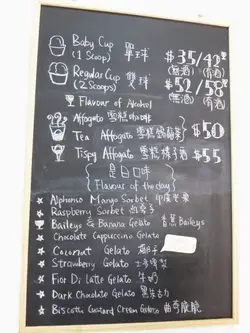 Baby Cup 單球 $35/42
(1 Scoop) (無酒) (有酒)
Regular Cup 雙球 $52/58
(2 Scoops) (無酒) (有酒)
Flavour of Alcohol
Affogato 雪糕咖啡
Tea Affogato 雪糕 $50
Tispy Affogato 雪糕 $55
是日口味
Flavours of the day
Alphonso Mango Sorbet 印度芒果
Raspberry Sorbet
Baileys & Banana Gelato 香蕉 Baileys
Chocolate Cappuccino Gelato
Coconut Gelato 椰子
Strawberry Gelato 士多啤梨
Fior Di Latte Gelato 牛奶
Dark Chocolate Gelato 黑朱古力
Biscotti Custard Cream Gelato 曲奇